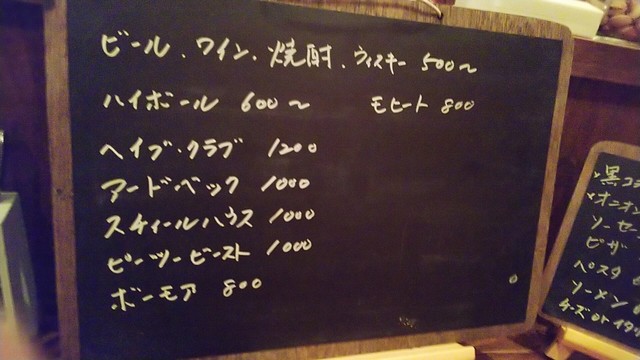 ビール、ワイン、焼酎、ウィスキー 500〜
ハイボール 600〜 モヒート 800
ヘイブ・クラブ 1200
アードベック 1000
スティールハウス 1000
ピーツービースト 1000
ボーモア 800
黒コ
オニオン
ソーセー
ピザ
ペスタ
ソーメン
チーズ or イタ